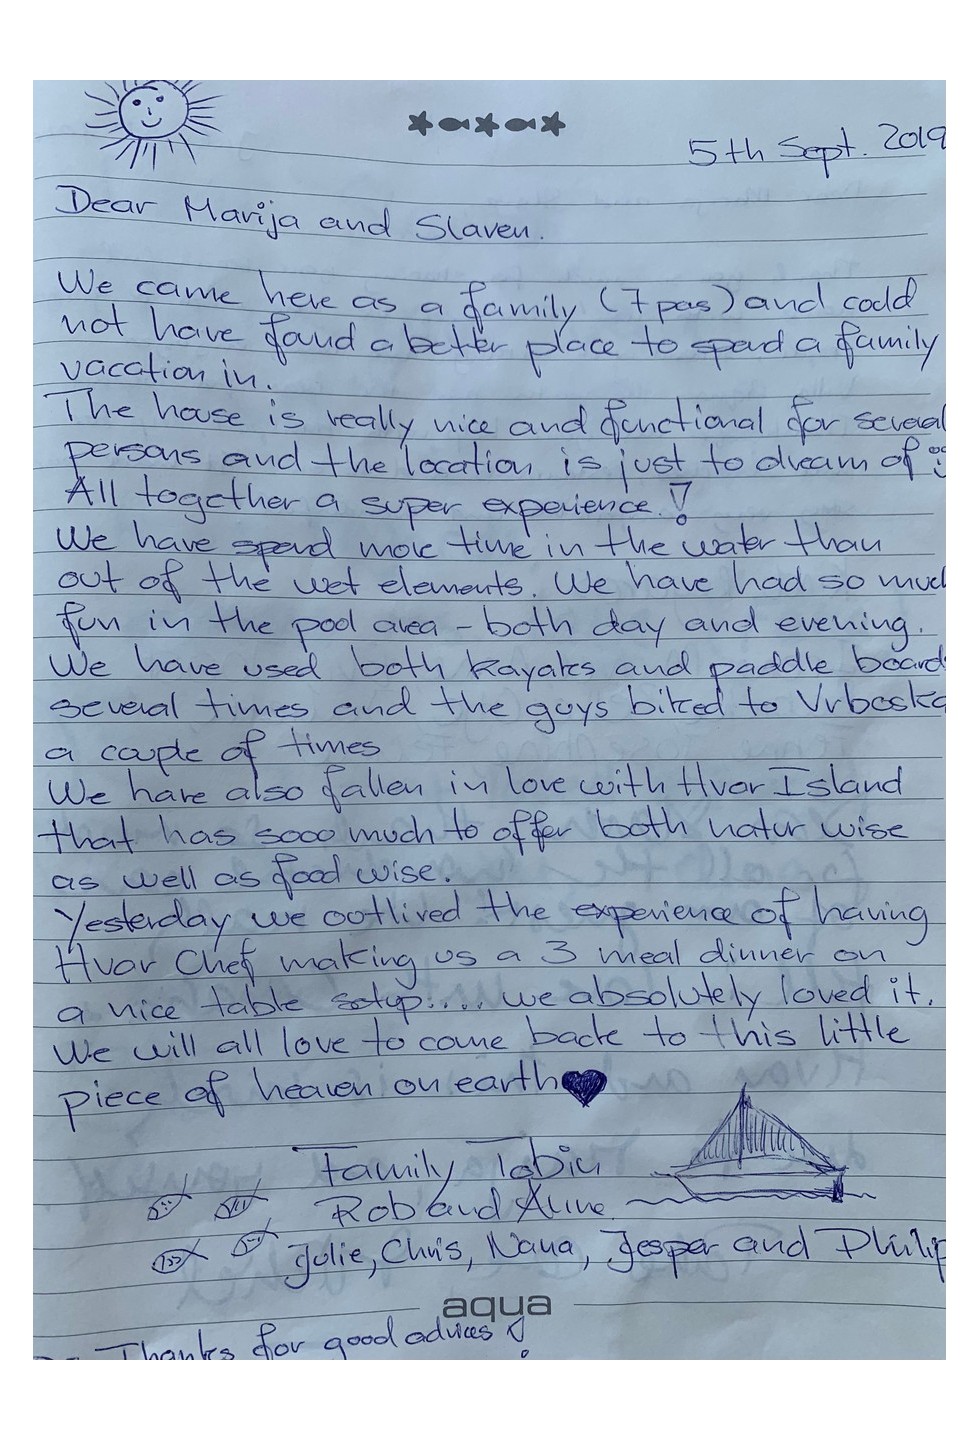 5th Sept. 2019
Dear Marija and Slaven.
We came here as a family (7 pas) and could
not have found a better place to spend a family
vacation in.
The house is really nice and functional for several
persons and the location is just to dream of
All together a super experience!
We have spend more time in the water than
out of the wet elements. We have had so much
fun in the pool area - both day and evening.
We have used both kayaks and paddle board
several times and the guys biked to Vrboska
a couple of times
We have also fallen in love with Hvar Island
that has sooo much to offer both natur wise
as well as food wise.
Yesterday we outlived the experience of having
Hvar Chef making us a 3 meal dinner on
a nice table setup.... we absolutely loved it.
We will all love to come back to this little
piece of heaven on earth
Family
Rob and
Julie, Chris, Nana, Jesper and Philip
aqua
Thanks for good advices!